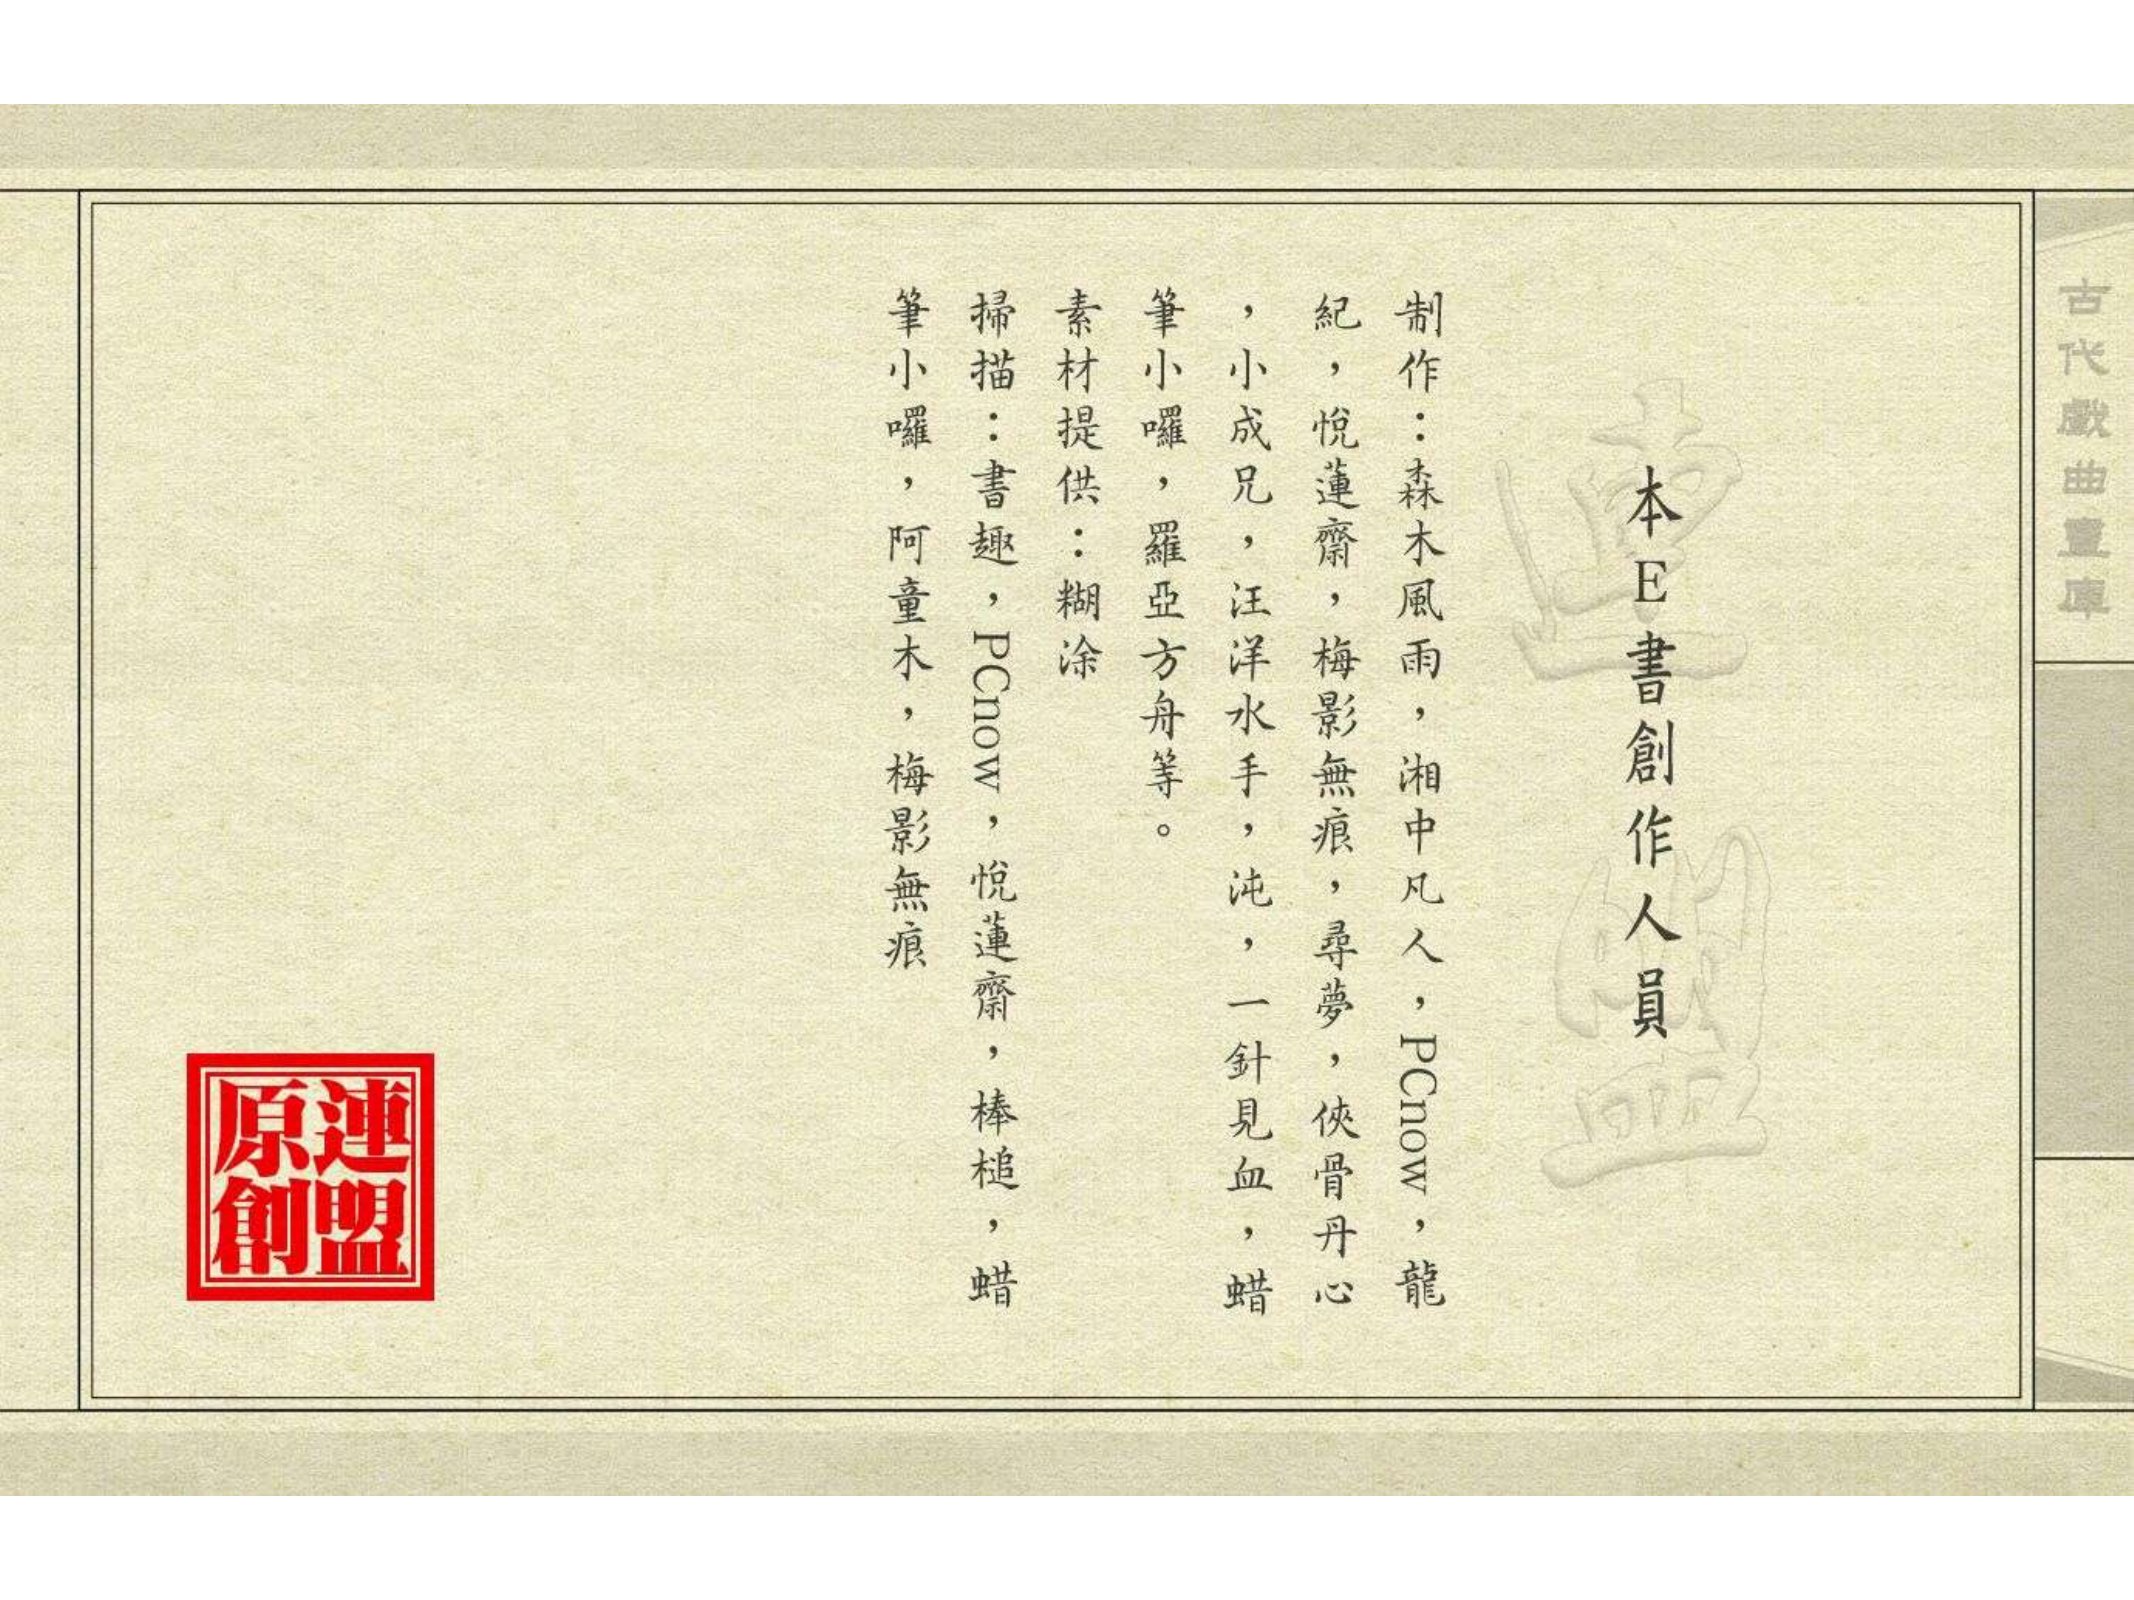 古代戲曲畫庫
連盟
本E書創作人員
制作：森木風雨，湘中凡人，PCnow，龍
紀，悅蓮齋，梅影無痕，尋夢，俠骨丹心
，小成兄，汪洋水手，沌，一針見血，蜡
筆小囉，羅亞方舟等。
素材提供：糊涂
掃描：書趣，PCnow，悅蓮齋，棒槌，蜡
筆小囉，阿童木，梅影無痕
連盟
原創